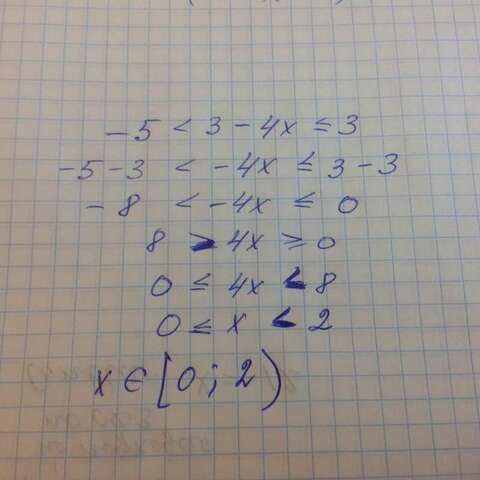 -5 < 3 - 4x ≤ 3
-5 - 3 < -4x ≤ 3 - 3
-8 < -4x ≤ 0
8 > 4x ≥ 0
0 ≤ 4x < 8
0 ≤ x < 2
x ∈ [0; 2)